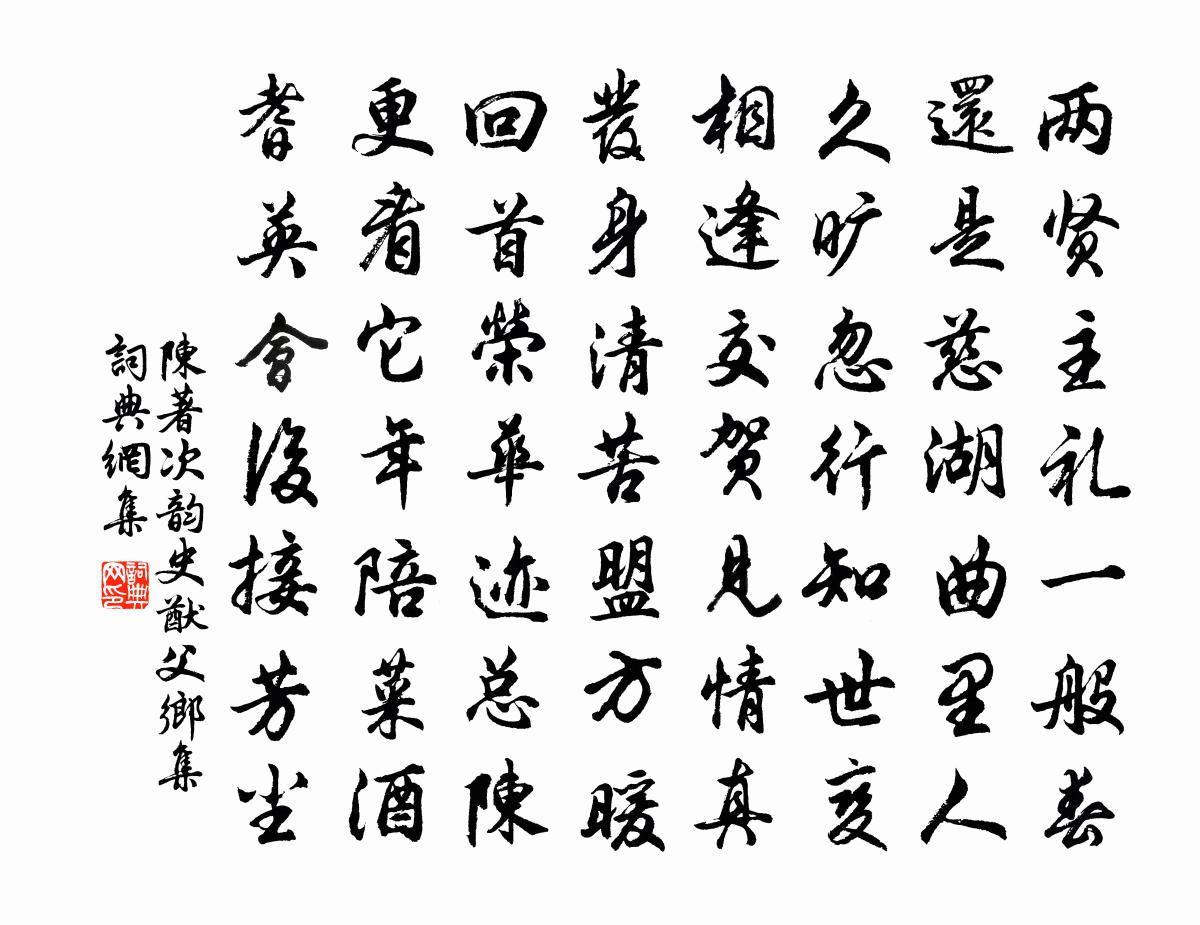 两贤主礼一般春
還是慈湖曲里人
久旷忽行知世变
相逢交贺見情真
發身清苦盟方暖
回首榮華迹总陳
更看它年陪菜酒
耆英會後接芳尘
陳著次韵史猷父鄉集
詞典網集
詞典
网印